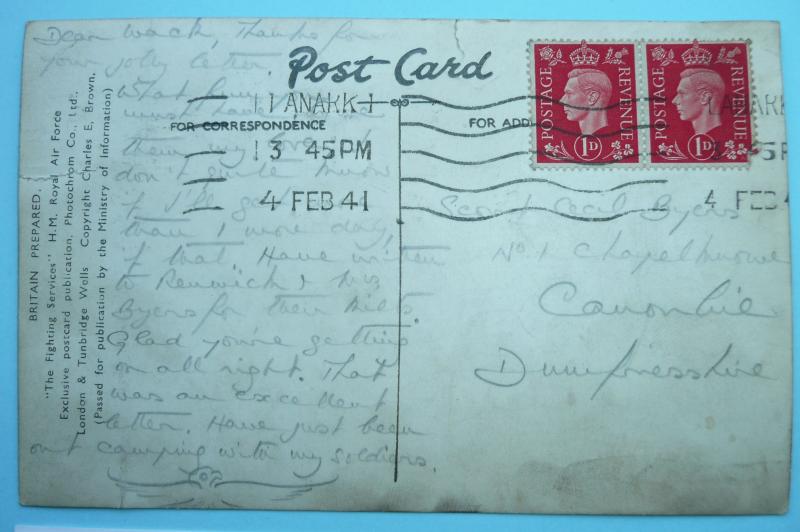 Dear Wack, Thanks for
your jolly letter.
What fun
must have
them my love
don't quite know
if I'll get
than 1 more day,
if that. Have written
to Renwick & Mrs
Byers for their bills.
Glad you're getting
on all right. That
was an excellent
letter. Have just been
out camping with my soldiers.
Post Card
FOR CORRESPONDENCE
FOR ADD
LANARK 1
3 45PM
4 FEB 41
LANARK
45P
4 FEB 4
POSTAGE REVENUE
1D
POSTAGE REVENUE
1D
Scout Cecil Byers
No. 1 Chapelknowe
Canonbie
Dumfriesshire
BRITAIN PREPARED.
"The Fighting Services" H.M. Royal Air Force
Exclusive postcard publication, Photochrom Co., Ltd.,
London & Tunbridge Wells Copyright Charles E, Brown.
(Passed for publication by the Ministry of Information)